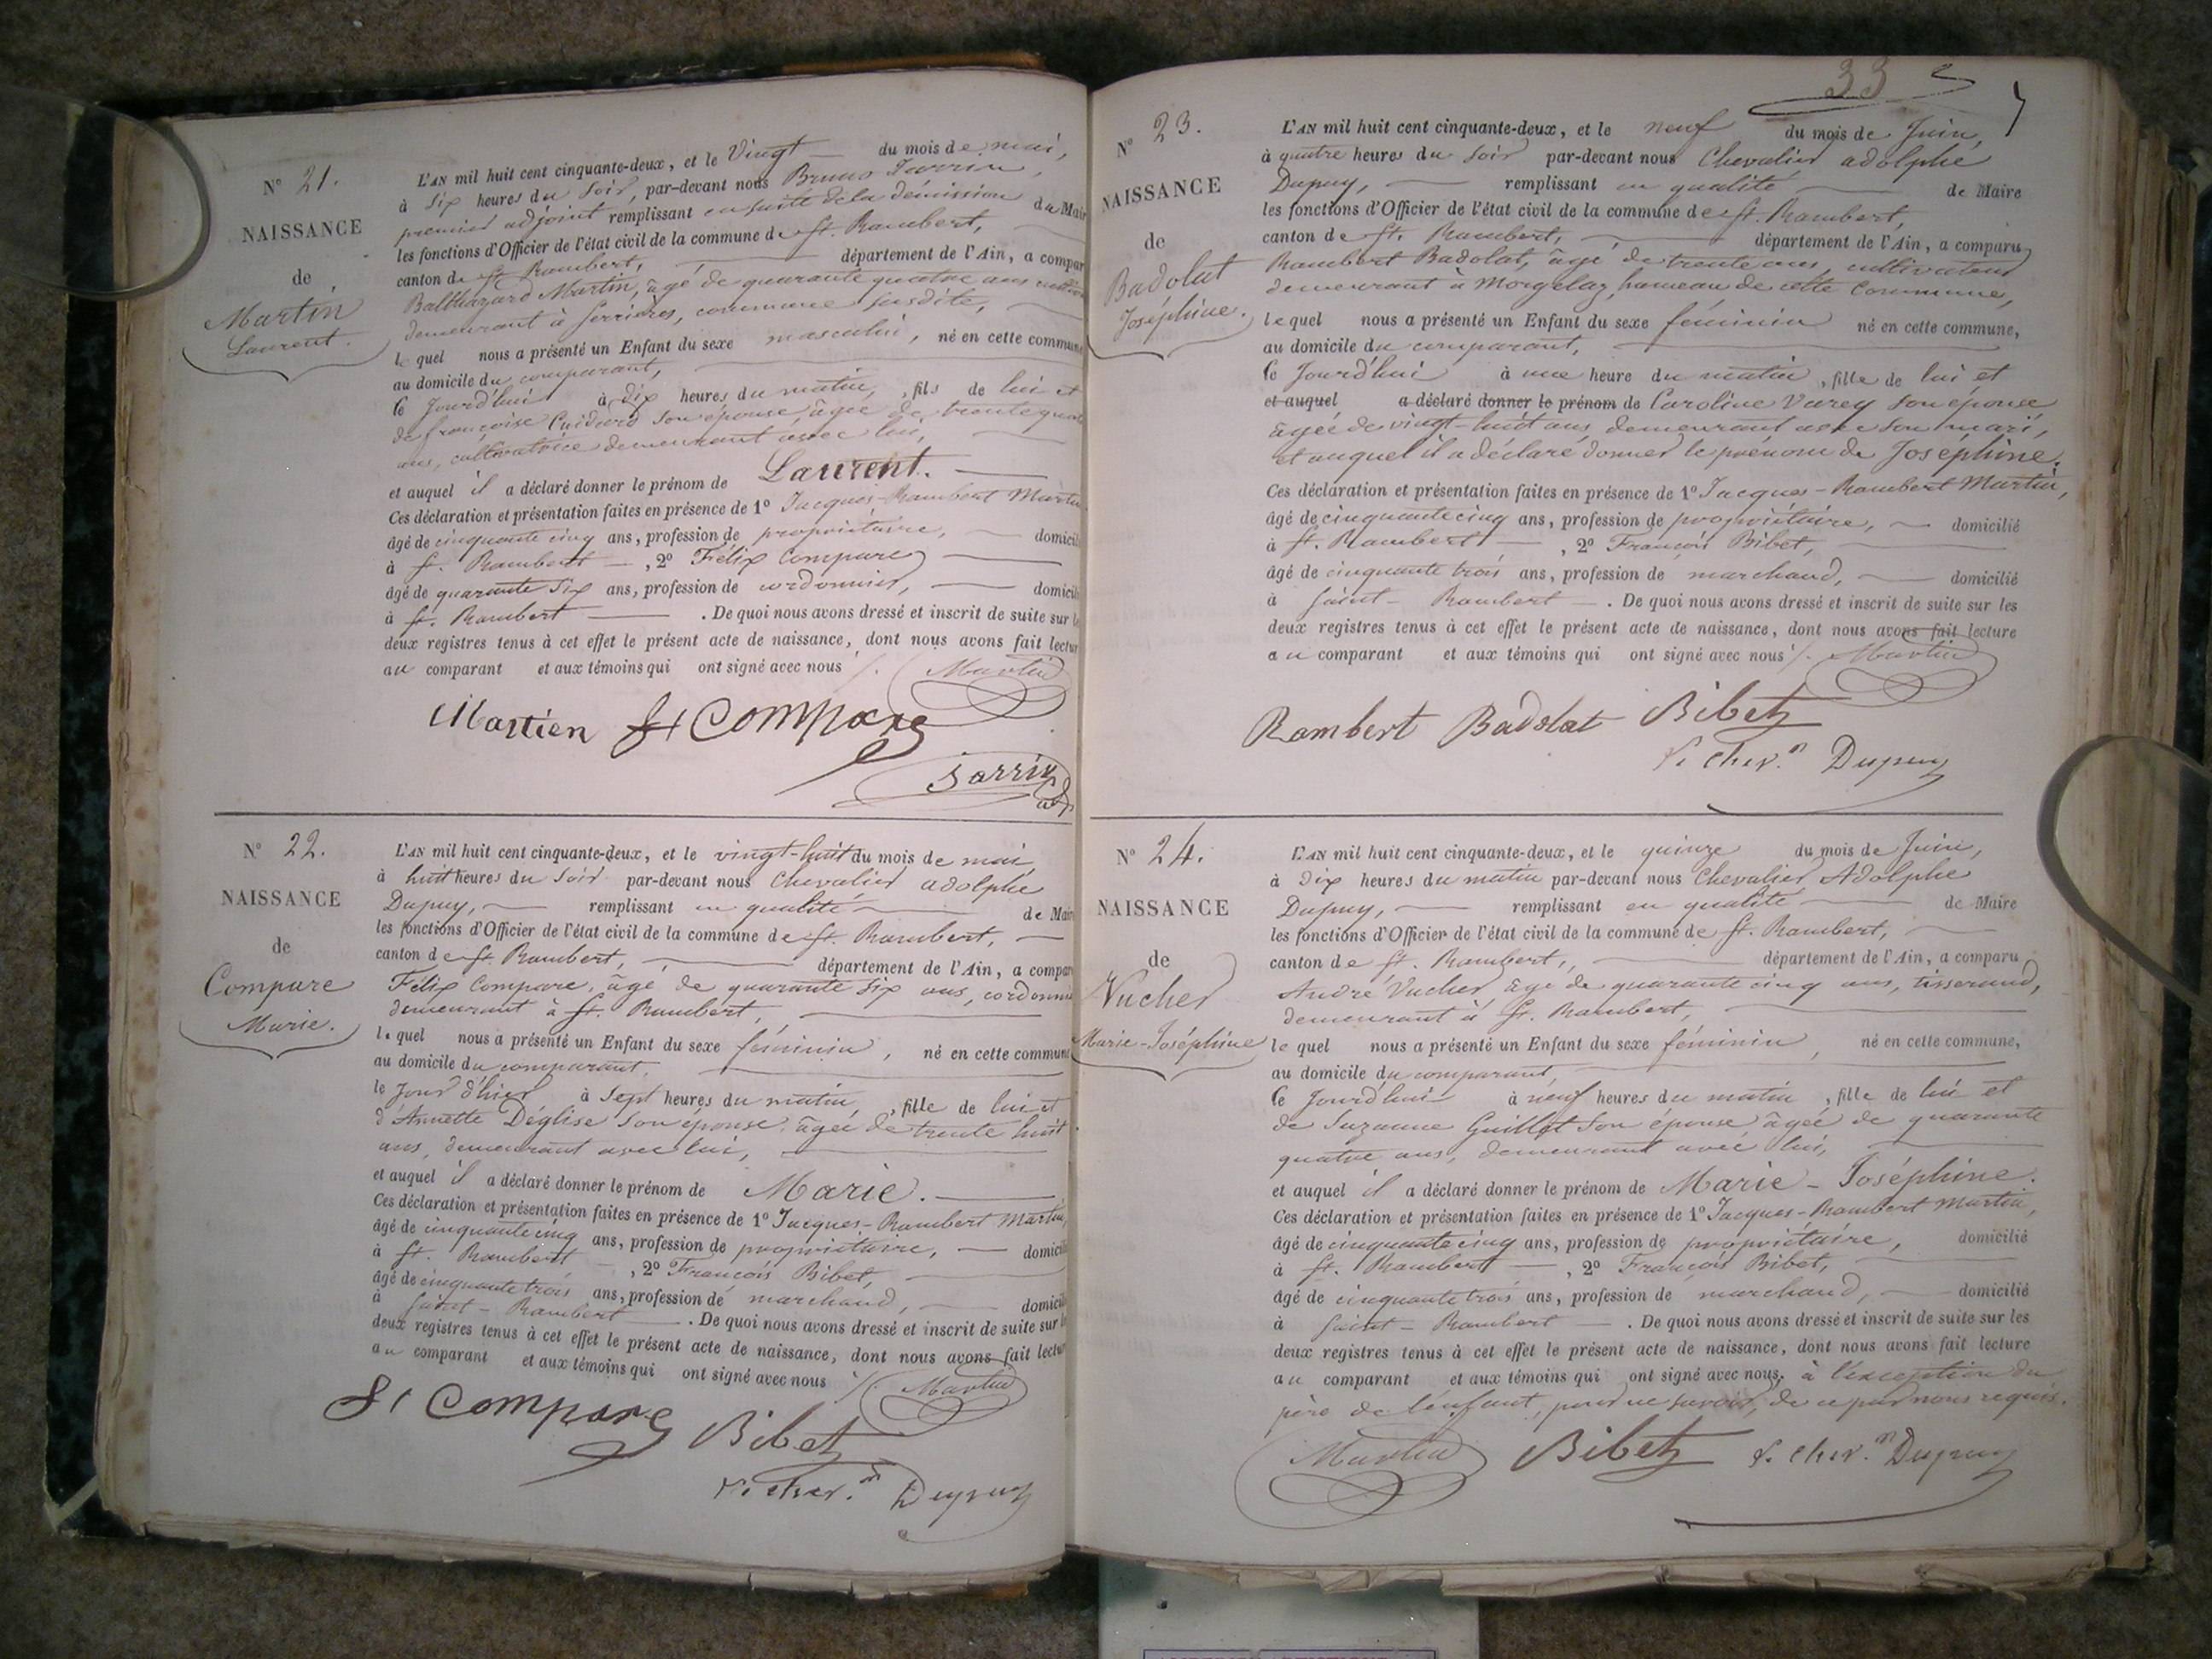 N° 21.
NAISSANCE
de
Martin
Laurent.
L'AN mil huit cent cinquante-deux, et le Vingt du mois de mai,
à six heures du soir, par-devant nous Bruno Jarrin,
premier adjoint remplissant ensuite de la démission du Mair
les fonctions d'Officier de l'état civil de la commune de St. Rambert,
canton de St. Rambert, département de l'Ain, a compar
Balthazard Martin, âgé de quarante quatre ans
demeurant à Serrières, commune susdite,
lequel nous a présenté un Enfant du sexe masculin, né en cette commune
au domicile du comparant,
ce Jourd'hui à dix heures du matin, fils de lui et
de françoise son épouse âgée de trente quat
ans, cultivatrice demeurant avec lui,
et auquel il a déclaré donner le prénom de Laurent.
Ces déclaration et présentation faites en présence de 1° Jacques-Rambert Martin
âgé de cinquante cinq ans, profession de propriétaire, domicili
à St. Rambert, 2° Félix Compare
âgé de quarante six ans, profession de cordonnier, domicili
à St. Rambert. De quoi nous avons dressé et inscrit de suite sur le
deux registres tenus à cet effet le présent acte de naissance, dont nous avons fait lectur
au comparant et aux témoins qui ont signé avec nous /. Martin
Martien ft Compare
Jarrin
adj
N° 22.
NAISSANCE
de
Compare
Marie.
L'AN mil huit cent cinquante-deux, et le vingt-huit du mois de mai
à huit heures du soir par-devant nous Chevalier adolphe
Dupuy, remplissant en qualité de Mair
les fonctions d'Officier de l'état civil de la commune de St. Rambert,
canton de St. Rambert, département de l'Ain, a compar
Félix Compare, âgé de quarante six ans, cordonnie
demeurant à St. Rambert,
lequel nous a présenté un Enfant du sexe féminin, né en cette commune
au domicile du comparant,
le Jour d'hier à sept heures du matin, fille de lui et
d'Annette Déglise son épouse, âgée de trente huit
ans, demeurant avec lui,
et auquel il a déclaré donner le prénom de Marie.
Ces déclaration et présentation faites en présence de 1° Jacques-Rambert Martin,
âgé de cinquante cinq ans, profession de propriétaire, domicili
à St. Rambert, 2° François Bibet,
âgé de cinquante trois ans, profession de marchand, domicili
à Saint-Rambert. De quoi nous avons dressé et inscrit de suite sur l
deux registres tenus à cet effet le présent acte de naissance, dont nous avons fait lectur
au comparant et aux témoins qui ont signé avec nous /. Martin
ft Compare Bibet
Le cher.n Dupuy
33
N° 23.
NAISSANCE
de
Badolat
Joséphine.
L'AN mil huit cent cinquante-deux, et le neuf du mois de Juin,
à quatre heures du soir par-devant nous Chevalier adolphe
Dupuy, remplissant en qualité de Maire
les fonctions d'Officier de l'état civil de la commune de St. Rambert,
canton de St. Rambert, département de l'Ain, a comparu
Rambert Badolat, âgé de trente ans, cultivateur
demeurant à Morgelaz, hameau de cette commune,
lequel nous a présenté un Enfant du sexe féminin né en cette commune,
au domicile du comparant,
ce Jourd'hui à une heure du matin, fille de lui et
et auquel a déclaré donner le prénom de Caroline Varey son épouse
âgée de vingt-huit ans demeurant avec son mari,
et auquel il a déclaré donner le prénom de Joséphine.
Ces déclaration et présentation faites en présence de 1° Jacques-Rambert Martin,
âgé de cinquante cinq ans, profession de propriétaire, domicilié
à St. Rambert, 2° François Bibet,
âgé de cinquante trois ans, profession de marchand, domicilié
à Saint-Rambert. De quoi nous avons dressé et inscrit de suite sur les
deux registres tenus à cet effet le présent acte de naissance, dont nous avons fait lecture
au comparant et aux témoins qui ont signé avec nous /. Martin
Rambert Badolat Bibet
Le cher.n Dupuy
N° 24.
NAISSANCE
de
Vucher
Marie-Joséphine
L'AN mil huit cent cinquante-deux, et le quinze du mois de Juin,
à dix heures du matin par-devant nous Chevalier Adolphe
Dupuy, remplissant en qualité de Maire
les fonctions d'Officier de l'état civil de la commune de St. Rambert,
canton de St. Rambert, département de l'Ain, a comparu
André Vucher âgé de quarante cinq ans, tisserand,
demeurant à St. Rambert,
lequel nous a présenté un Enfant du sexe féminin, né en cette commune,
au domicile du comparant,
ce Jourd'hui à neuf heures du matin, fille de lui et
de Suzanne Guillot son épouse âgée de quarante
quatre ans, demeurant avec lui,
et auquel il a déclaré donner le prénom de Marie-Joséphine.
Ces déclaration et présentation faites en présence de 1° Jacques-Rambert Martin,
âgé de cinquante cinq ans, profession de propriétaire, domicilié
à St. Rambert, 2° François Bibet,
âgé de cinquante trois ans, profession de marchand, domicilié
à Saint-Rambert. De quoi nous avons dressé et inscrit de suite sur les
deux registres tenus à cet effet le présent acte de naissance, dont nous avons fait lecture
au comparant et aux témoins qui ont signé avec nous, à l'exception du
père de l'enfant, pour ne savoir, de ce par nous requis.
Martin Bibet Le cher.n Dupuy